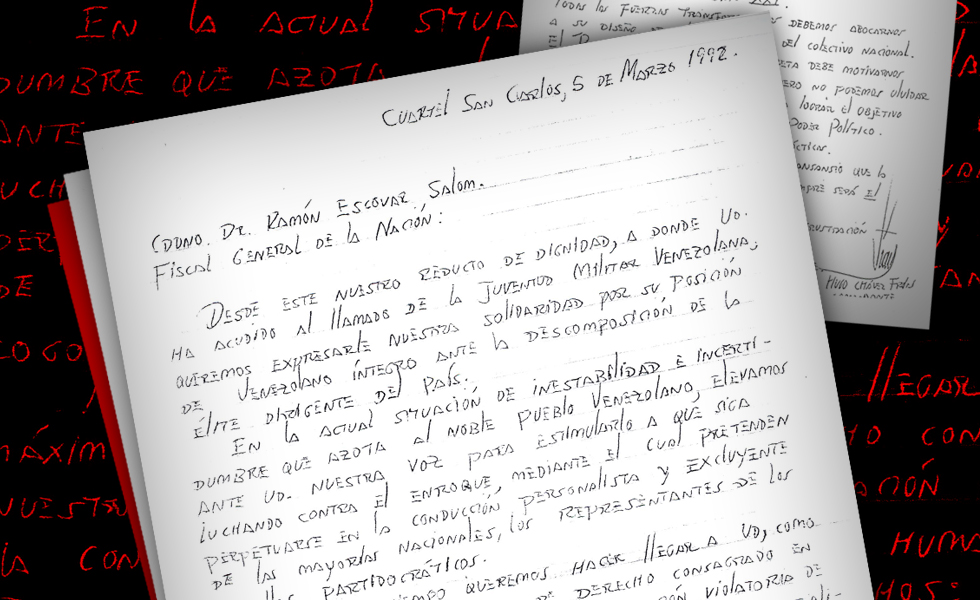 Cuartel San Carlos, 5 de Marzo 1992.
Cddno. Dr. Ramón Escovar Salom.
Fiscal General de la Nación:
Desde este nuestro reducto de dignidad, a donde Ud.
ha acudido al llamado de la juventud militar venezolana,
queremos expresarle nuestra solidaridad por su posición
de venezolano íntegro ante la descomposición de la
élite dirigente del país.
En la actual situación de inestabilidad e incerti-
dumbre que azota al noble pueblo venezolano, elevamos
ante Ud. nuestra voz para estimularlo a que siga
luchando contra el enroque, mediante el cual pretenden
perpetuarse en la conducción personalista y excluyente
de las mayorías nacionales, los representantes de los
partidocráticos.
queremos hacer llegar a Ud, como
de derecho consagrado en
violatoria de
Todas las fuerzas
a su diseño
debemos abocarnos
del colectivo nacional.
debe motivarnos
pero no podemos olvidar
lograr el objetivo
Poder Político.
cansancio que la
siempre será el
frustración
Hugo Chávez Frías
En la actual situa
dumbre que azota
ante
de
llegar
con
máxim
nuestra
la con
huma